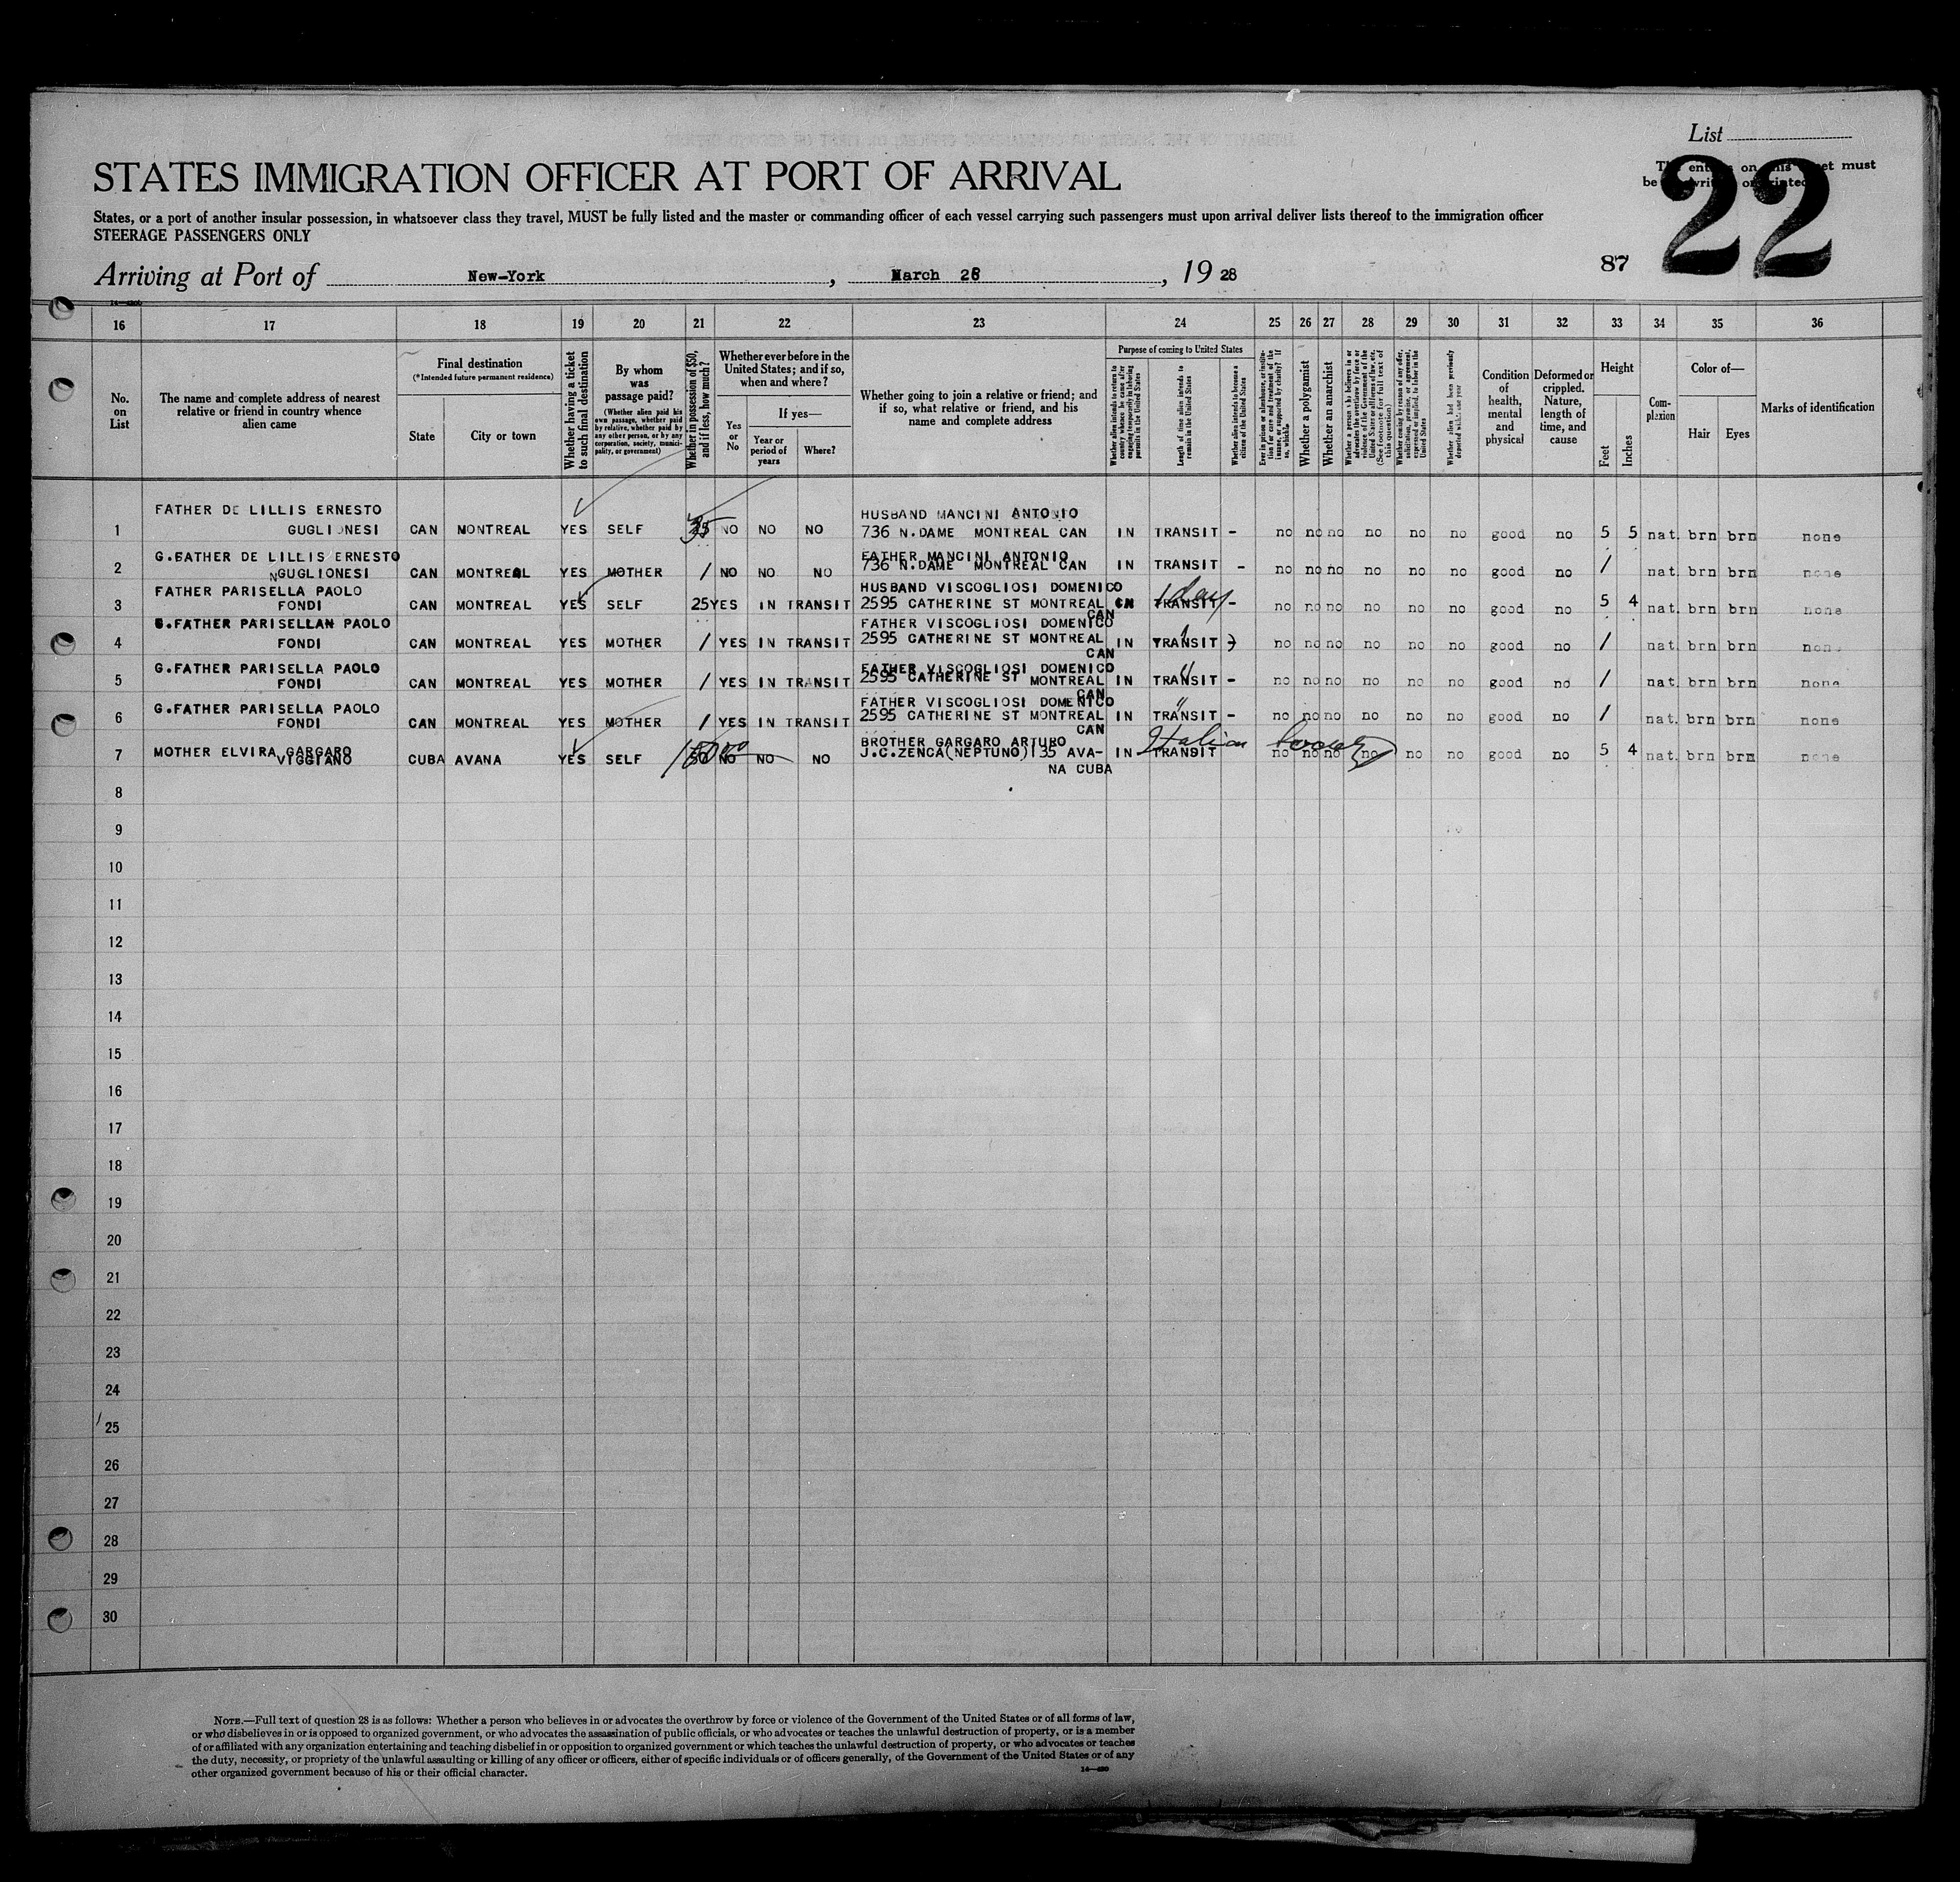 List
22
The entries on this sheet must
be typewritten or printed
STATES IMMIGRATION OFFICER AT PORT OF ARRIVAL
States, or a port of another insular possession, in whatsoever class they travel, MUST be fully listed and the master or commanding officer of each vessel carrying such passengers must upon arrival deliver lists thereof to the immigration officer
STEERAGE PASSENGERS ONLY
87
Arriving at Port of New-York, March 28, 1928
16 17 18 19 20 21 22 23 24 25 26 27 28 29 30 31 32 33 34 35 36
No. on List
The name and complete address of nearest relative or friend in country whence alien came
Final destination
(*Intended future permanent residence)
State
City or town
Whether having a ticket to such final destination
By whom was passage paid?
(Whether alien paid his own passage, whether paid by relative, whether paid by any other person, or by any corporation, society, municipality, or government)
Whether in possession of $50, and if less, how much?
Whether ever before in the United States; and if so, when and where?
Yes or No
If yes—
Year or period of years
Where?
Whether going to join a relative or friend; and if so, what relative or friend, and his name and complete address
Purpose of coming to United States
Whether alien intends to return to country whence he came after engaging temporarily in laboring pursuits in the United States
Length of time alien intends to remain in the United States
Whether alien intends to become a citizen of the United States
Ever in prison or almshouse, or institution for care and treatment of the insane, or supported by charity? If so, which?
Whether a polygamist
Whether an anarchist
Whether a person who believes in or advocates the overthrow by force or violence of the Government of the United States or all forms of law, etc. (See footnote for full text of this question)
Whether coming by reason of any offer, solicitation, promise, or agreement, expressed or implied, to labor in the United States
Whether alien had been previously deported within one year
Condition of health, mental and physical
Deformed or crippled. Nature, length of time, and cause
Height
Feet
Inches
Complexion
Color of—
Hair
Eyes
Marks of identification
FATHER DE LILLIS ERNESTO HUSBAND MANCINI ANTONIO
1 GUGLIONESI CAN MONTREAL YES SELF 35 NO NO NO 736 N.DAME MONTREAL CAN IN TRANSIT - no no no no no no good no 5 5 nat. brn brn none
G.FATHER DE LILLIS ERNESTO FATHER MANCINI ANTONIO
2 GUGLIONESI CAN MONTREAL YES MOTHER / NO NO NO 736 N.DAME MONTREAL CAN IN TRANSIT - no no no no no no good no / nat. brn brn none
FATHER PARISELLA PAOLO HUSBAND VISCOGLIOSI DOMENICO
3 FONDI CAN MONTREAL YES SELF 25 YES IN TRANSIT 2595 CATHERINE ST MONTREAL IN TRANSIT - no no no no no no good no 5 4 nat. brn brn none
1 day
CAN
G.FATHER PARISELLAN PAOLO FATHER VISCOGLIOSI DOMENICO
4 FONDI CAN MONTREAL YES MOTHER / YES IN TRANSIT 2595 CATHERINE ST MONTREAL IN TRANSIT - no no no no no no good no / nat. brn brn none
CAN
G.FATHER PARISELLA PAOLO FATHER VISCOGLIOSI DOMENICO
5 FONDI CAN MONTREAL YES MOTHER / YES IN TRANSIT 2595 CATHERINE ST MONTREAL IN TRANSIT - no no no no no no good no / nat. brn brn none
CAN
G.FATHER PARISELLA PAOLO FATHER VISCOGLIOSI DOMENICO
6 FONDI CAN MONTREAL YES MOTHER / YES IN TRANSIT 2595 CATHERINE ST MONTREAL IN TRANSIT - no no no no no no good no / nat. brn brn none
CAN
BROTHER GARGARO ARTURO Italian
7 MOTHER ELVIRA GARGARO CUBA AVANA YES SELF 50 NO NO NO J.C.ZENCA(NEPTUNO)135 AVA- IN TRANSIT no no no no no no good no 5 4 nat. brn brn none
VIGGIANO
NA CUBA
8
9
10
11
12
13
14
15
16
17
18
19
20
21
22
23
24
25
26
27
28
29
30
NOTE.—Full text of question 28 is as follows: Whether a person who believes in or advocates the overthrow by force or violence of the Government of the United States or of all forms of law,
or who disbelieves in or is opposed to organized government, or who advocates the assassination of public officials, or who advocates or teaches the unlawful destruction of property, or is a member
of or affiliated with any organization entertaining and teaching disbelief in or opposition to organized government or which teaches the unlawful destruction of property, or who advocates or teaches
the duty, necessity, or propriety of the unlawful assaulting or killing of any officer or officers, either of specific individuals or of officers generally, of the Government of the United States or of any
other organized government because of his or their official character.